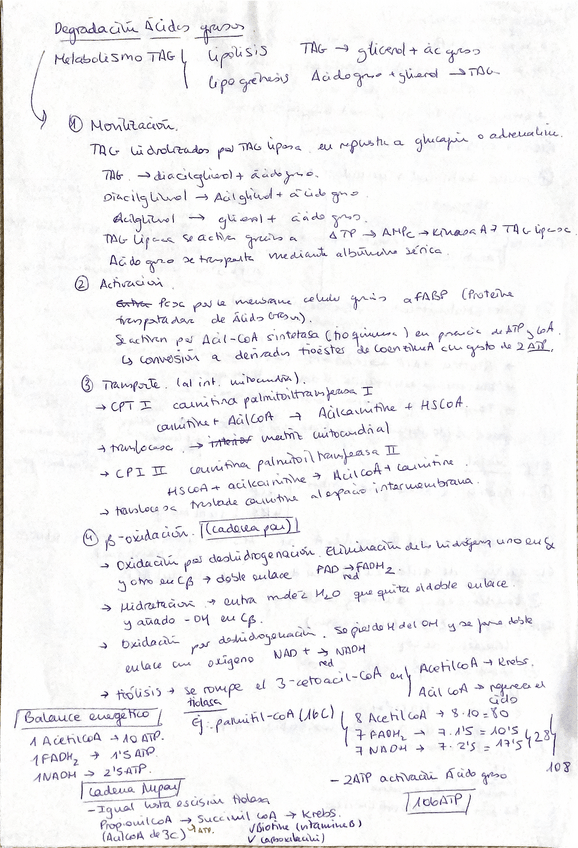 Degradación Ácidos grasos.
Metabolismo TAG { Lipólisis TAG → glicerol + ác graso
Lipogénesis Ácido graso + glicerol → TAG
① Movilización.
TAG hidrolizados por TAG lipasa en repuesta a glucagón o adrenalina.
TAG → diacilglicerol + ácido graso.
Diacilglicerol → Acilglicerol + ácido graso.
Acilglicerol → glicerol + ácido graso.
TAG lipasa se activa gracias a ATP → AMPc → kinasa A → TAG lipasa
Ácido graso se transporta mediante albúmina sérica.
② Activación.
Pasa por la membrana celular gracias a FABP (Proteína
transportadora de Ácidos grasos).
Se activan por Acil-CoA sintetasa (tioquinasa) en presencia de ATP y CoA.
↳ conversión a derivados tioésteres de coenzima A con gasto de 2 ATP.
③ Transporte. (al int. mitocondria).
→ CPT I carnitina palmitoiltransferasa I
carnitina + AcilCoA → Acilcarnitina + HSCoA.
→ translocasa → interior matriz mitocondrial
→ CPT II carnitina palmitoiltransferasa II
HSCoA + acilcarnitina → AcilCoA + carnitina.
→ translocasa traslada carnitina al espacio intermembrana.
④ β-oxidación. (cadena par)
→ Oxidación por deshidrogenación. Eliminación de los hidrógenos uno en Cα
y otro en Cβ → doble enlace FAD → FADH2
red
→ Hidratación → entra molec H2O que quita el doble enlace
y añade -OH en Cβ.
→ Oxidación por deshidrogenación. Se pierde H del OH y se forma doble
enlace con oxígeno NAD+ → NADH
red
→ tiólisis → se rompe el 3-cetoacil-CoA en { AcetilCoA → Krebs.
tiolasa Acil CoA → regresa al
ciclo
Balance energético
1 AcetilCoA → 10 ATP.
1 FADH2 → 1'5 ATP.
1 NADH → 2'5 ATP.
Ej: palmitil-CoA (16C) { 8 AcetilCoA → 8·10 = 80
7 FADH2 → 7·1'5 = 10'5
7 NADH → 7·2'5 = 17'5 } 28
108
- 2ATP activación Ácido graso
106 ATP
Cadena Impar
- Igual hasta escisión tiolasa
PropionilCoA → Succinil CoA → Krebs.
(AcilCoA de 3C) ATP. ✓ Biotina (vitamina B)
✓ carboxilación